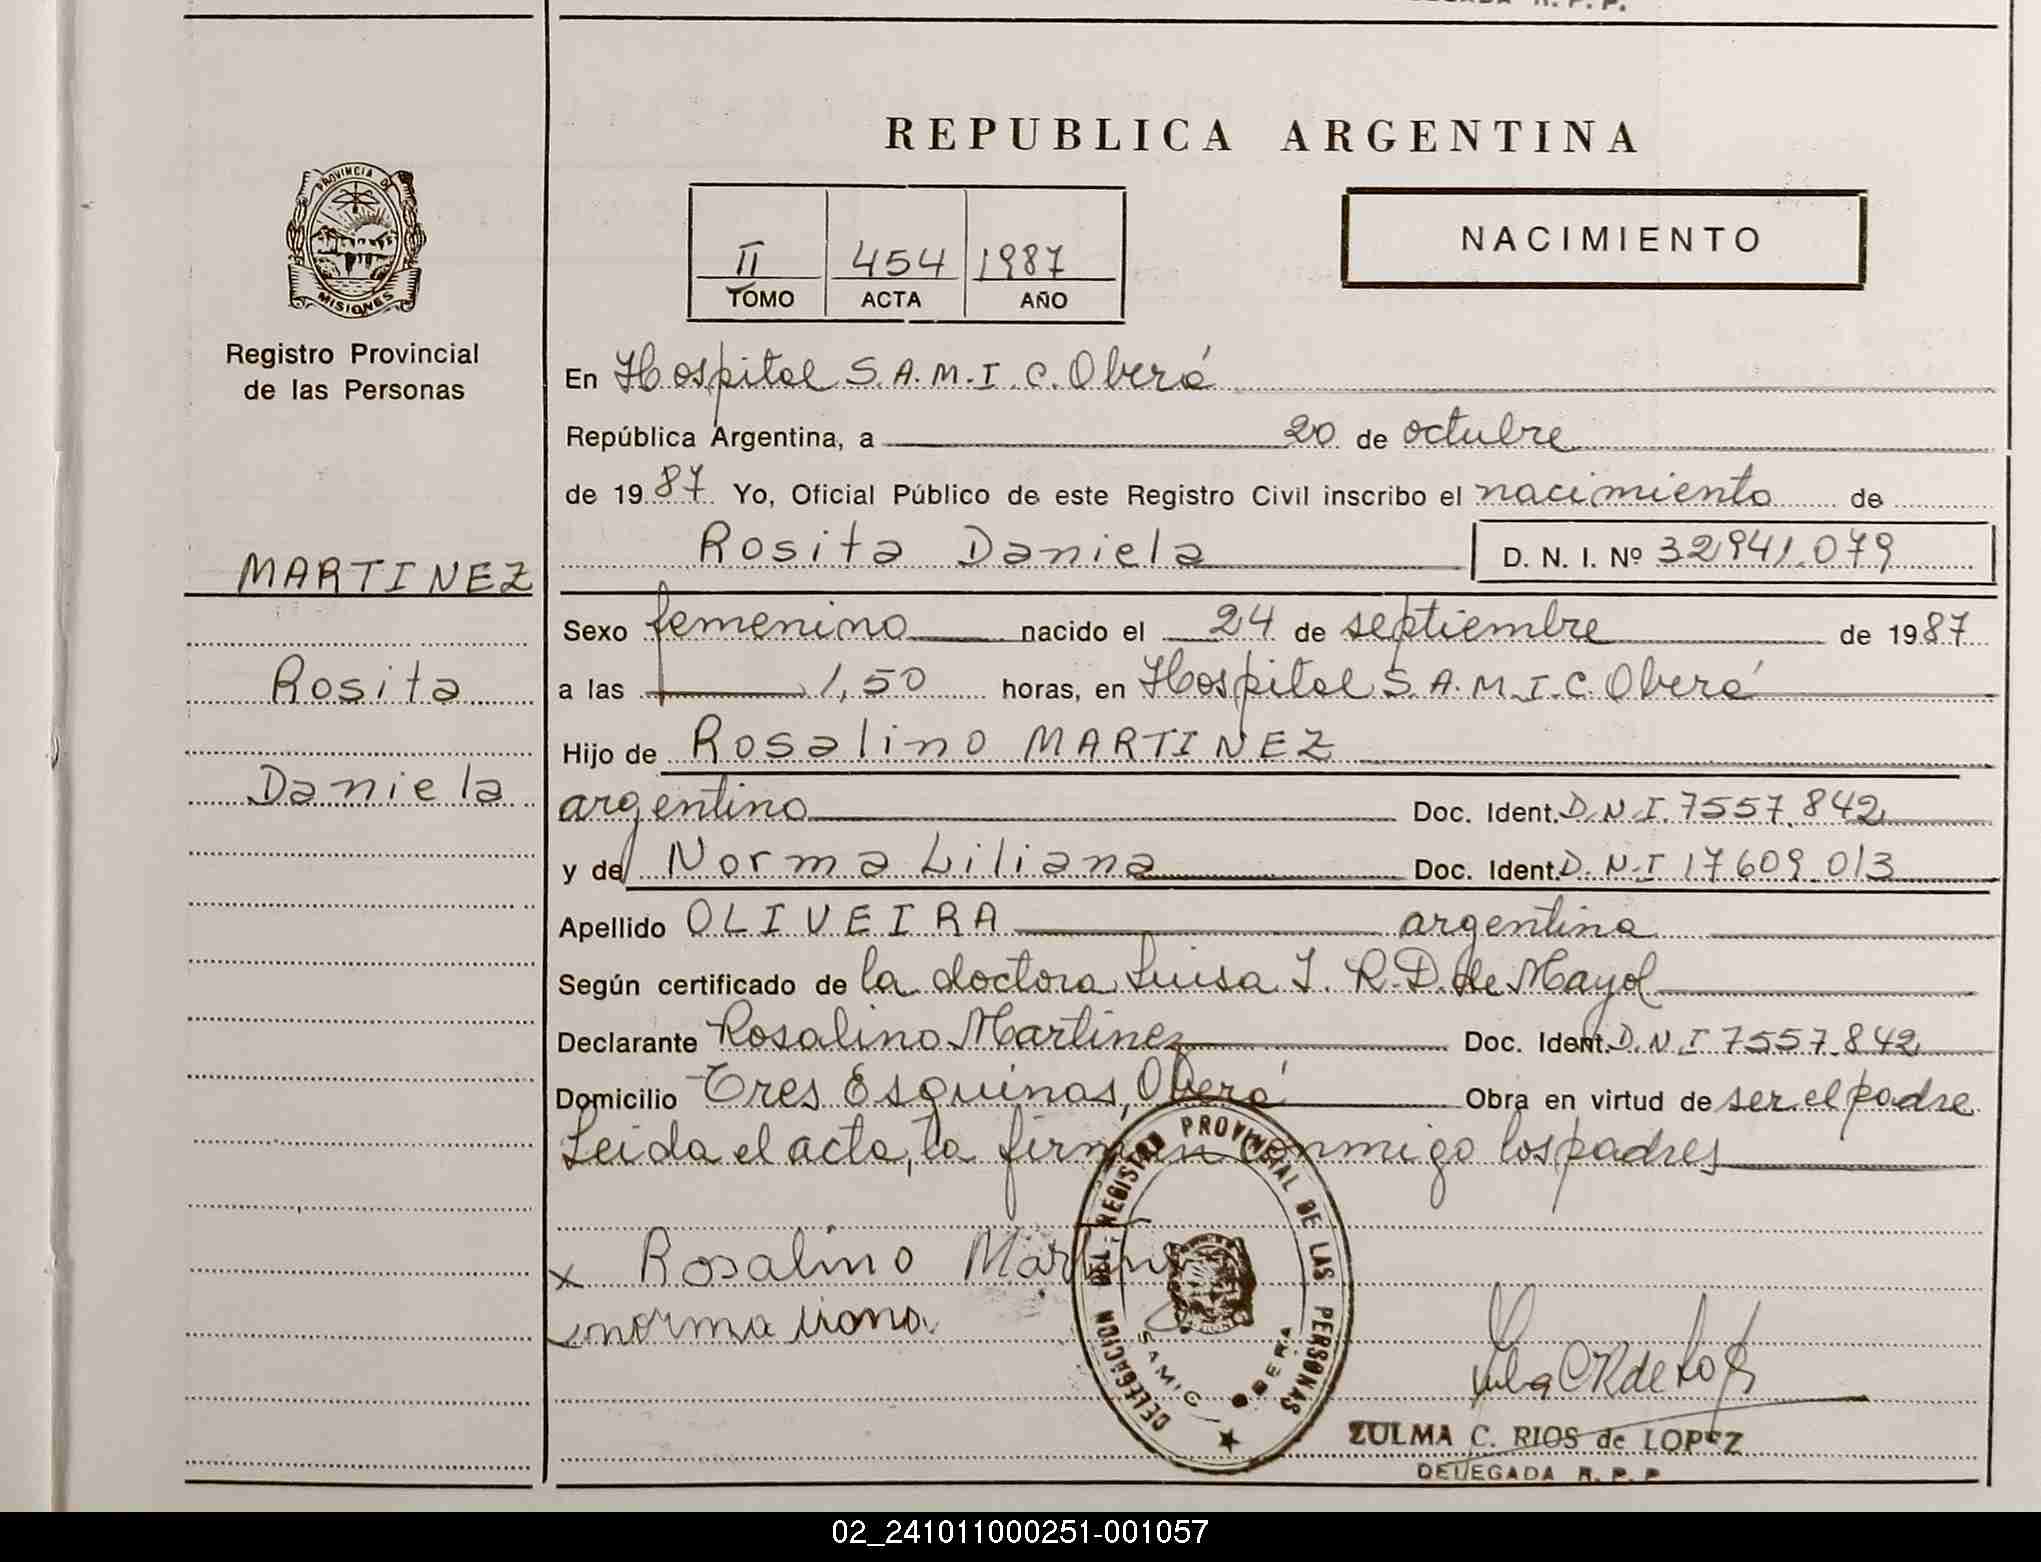 REPUBLICA ARGENTINA
PROVINCIA DE
MISIONES
Registro Provincial
de las Personas
II 454 1987
TOMO ACTA AÑO
NACIMIENTO
MARTINEZ
Rosita
Daniela
En Hospital S.A.M.I.C. Oberá
República Argentina, a 20 de octubre
de 1987 Yo, Oficial Público de este Registro Civil inscribo el nacimiento de
Rosita Daniela D. N. I. Nº 32941.079
Sexo femenino nacido el 24 de septiembre de 1987
a las 1,50 horas, en Hospital S.A.M.I.C. Oberá
Hijo de Rosalino MARTINEZ
argentino Doc. Ident. D.N.I. 7557.842
y de Norma Liliana Doc. Ident. D.N.I 17609.013
Apellido OLIVEIRA argentina
Según certificado de la doctora Luisa I. R.D. de Mayol
Declarante Rosalino Martinez Doc. Ident. D.N.I 7557.842
Domicilio Tres Esquinas, Oberá Obra en virtud de ser el padre
Leida el acta, la firman conmigo los padres
x Rosalino Martinez
norma
DELEGACION DEL REGISTRO PROVINCIAL DE LAS PERSONAS
SAMIC OBERA
ZULMA C. RIOS de LOPEZ
DELEGADA R. P. P.
02_241011000251-001057